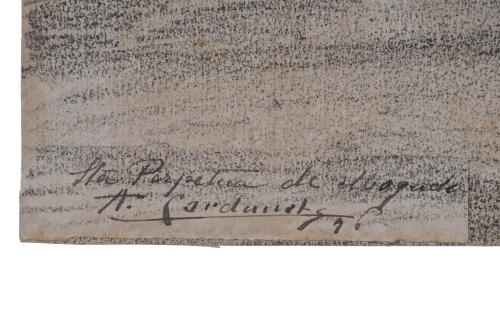 Sta Perpetua de Moguda
A. Cardunets 96